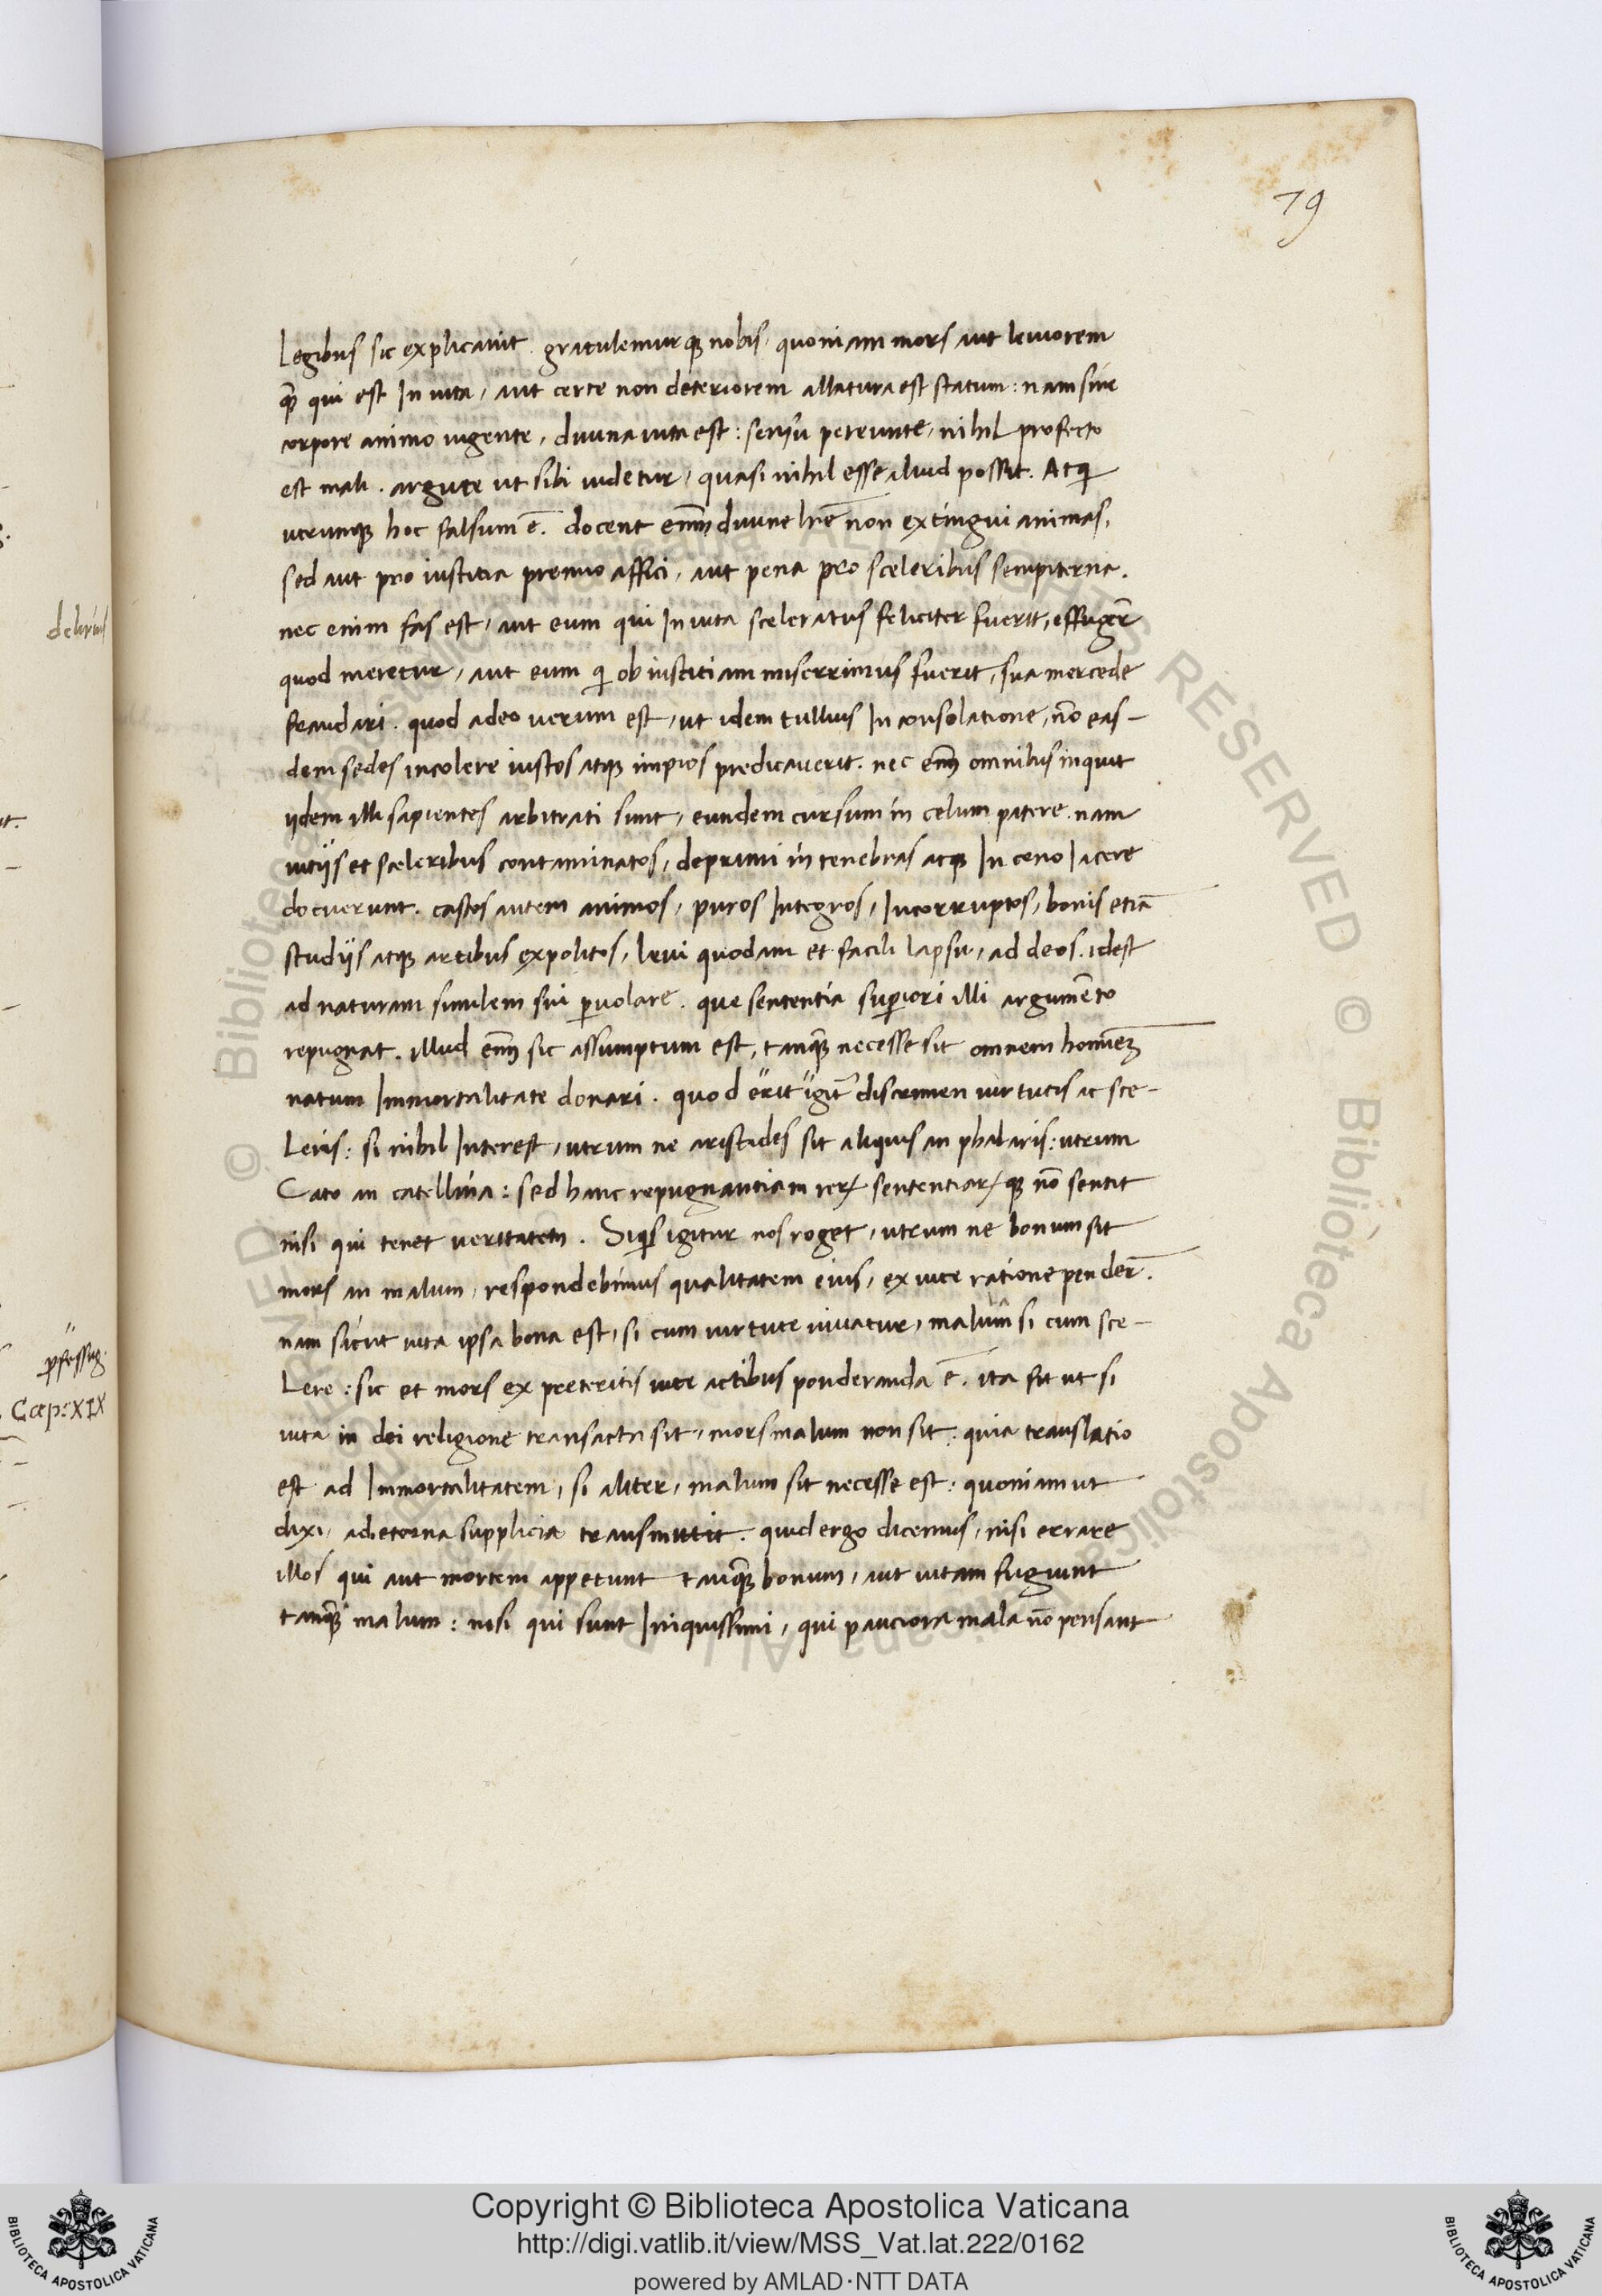 79
Legibus sic explicauit. gratulemurq̃ nobis. quoniam mors aut leuiorem
q̃ꝫ qui est In uita, aut certe non deteriorem allatura est statum: nam sine
corpore animo uigente, diuina uita est: sensu pereunte, nihil profecto
est mali. argute ut sibi uidetur, quasi nihil esse aliud possit. Atqi
utrunq̃ hoc falsum ē. docent eni᷃ diuine lr̄e non extingui animas,
sed aut pro iusticia premio affici, aut pena pro sceleribus sempiterna.
nec enim fas est, aut eum qui In uita sceleratus feliciter fuerit, effuger̄
quod meretur, aut eum qi ob iusticiam miserrimus fuerit, sua mercede
fraudari. quod adeo uerum est, ut idem tullius In consolatione, nō eas-
dem sedes incolere iustos atq̃ impios predicauerit. nec eni᷃ omnibus inquit
ijdem illi sapientes arbitrati sunt, eundem cursum in celum patere. nam
uitijs et sceleribus contaminatos, deprimi in tenebras atq̃ In ceno Iacere
docuerunt. castos autem animos, puros Integros, Incorruptos, bonis etiā
studijs atq̃ artibus expolitos, leui quodam et facili lapsu, ad deos. idest
ad naturam similem sui ꝑuolare. que sententia suꝑiori illi argumēto
repugnat. illud eni᷃ sic assumptum est, tanq̃ꝫ necesse sit omnem hominēꝫ
natum Immortalitate donari. quod erit igit᷃ discrimen uirtutis ac sce-
Leris: si nihil Interest, utrum ne aristides sit aliquis an phalaris: utrum
Cato an catellina: sed hanc repugnantiam reꝝ sententiaꝝq̃ nō sentit
nisi qui tenet ueritatem. Siqis igitur nos roget, utrum ne bonum sit
mors an malum, respondebimus qualitatem eius, ex uite ratione pender̄.
nam sicut uita ipsa bona est, si cum uirtute uiuatur, malum si cum sce-
Lere: sic et mors ex preteritis uite actibus ponderanda ē. ita fit ut si
uita in dei religione transacta sit, mors malum non sit: quia translatio
est ad Immortalitatem, si aliter, malum sit necesse est: quoniam ut
dixi, ad eterna supplicia transmittit. quid ergo dicemus, nisi errare
illos qui aut mortem appetunt tanq̃ꝫ bonum, aut uitam fugiunt
tanq̃ꝫ malum: nisi qui sunt Iniquissimi, qui pauciora mala nō pensant
Cap: XIX
Copyright © Biblioteca Apostolica Vaticana
http://digi.vatlib.it/view/MSS_Vat.lat.222/0162
powered by AMLAD·NTT DATA
BIBLIOTECA APOSTOLICA VATICANA
BIBLIOTECA APOSTOLICA VATICANA